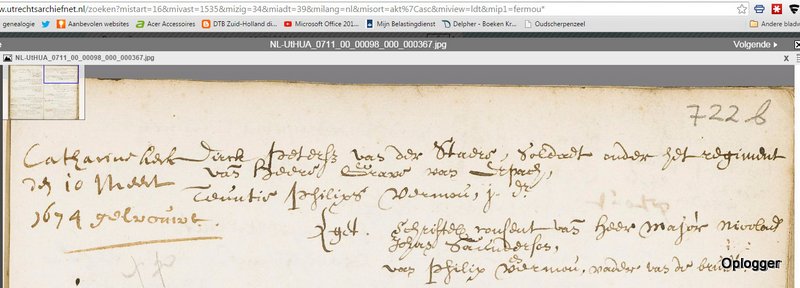 w.utrechtsarchiefnet.nl/zoeken?mistart=16&mivast=1535&mizig=34&miadt=39&milang=nl&misort=akt%67Casc&miview=ldt&mip1=fermou*
genealogie Aanbevolen websites Acer Accessoires DTB Zuid-Holland di... YouTube Microsoft Office 201... Mijn Belastingdienst Delpher - Boeken Kr... Oudscherpenzeel Andere bladw
NL-UtHUA_0711_00_00098_000_000367.jpg Volgende
NL-UtHUA_0711_00_00098_000_000367.jpg X
722 b
Catharine kerk
den 10 Meert
1674 getrouwt.
Dirck Peterss van der Staers, Soldaet onder het regiment
van Heere Grave van
Teuntie Philips Vermou, j. dr.
get. Schriftel. consent van Heer Major Nicolaas
Johan
van Philip Vermou, vader van de bruit.
Oplogger